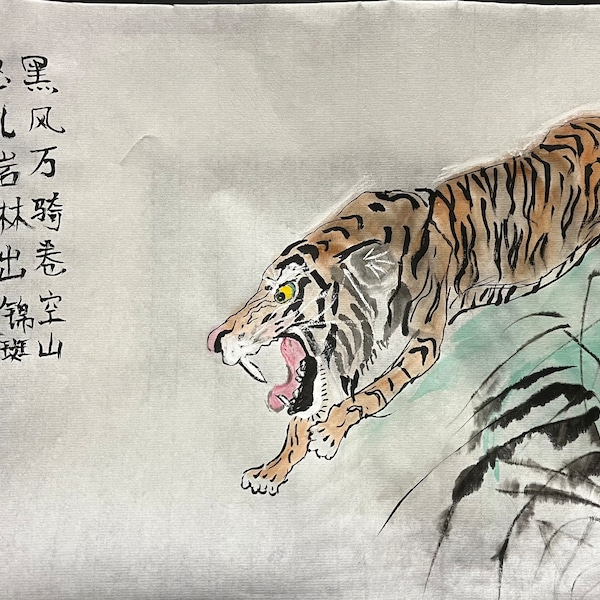 黑风万骑卷空山
岩林出锦斑